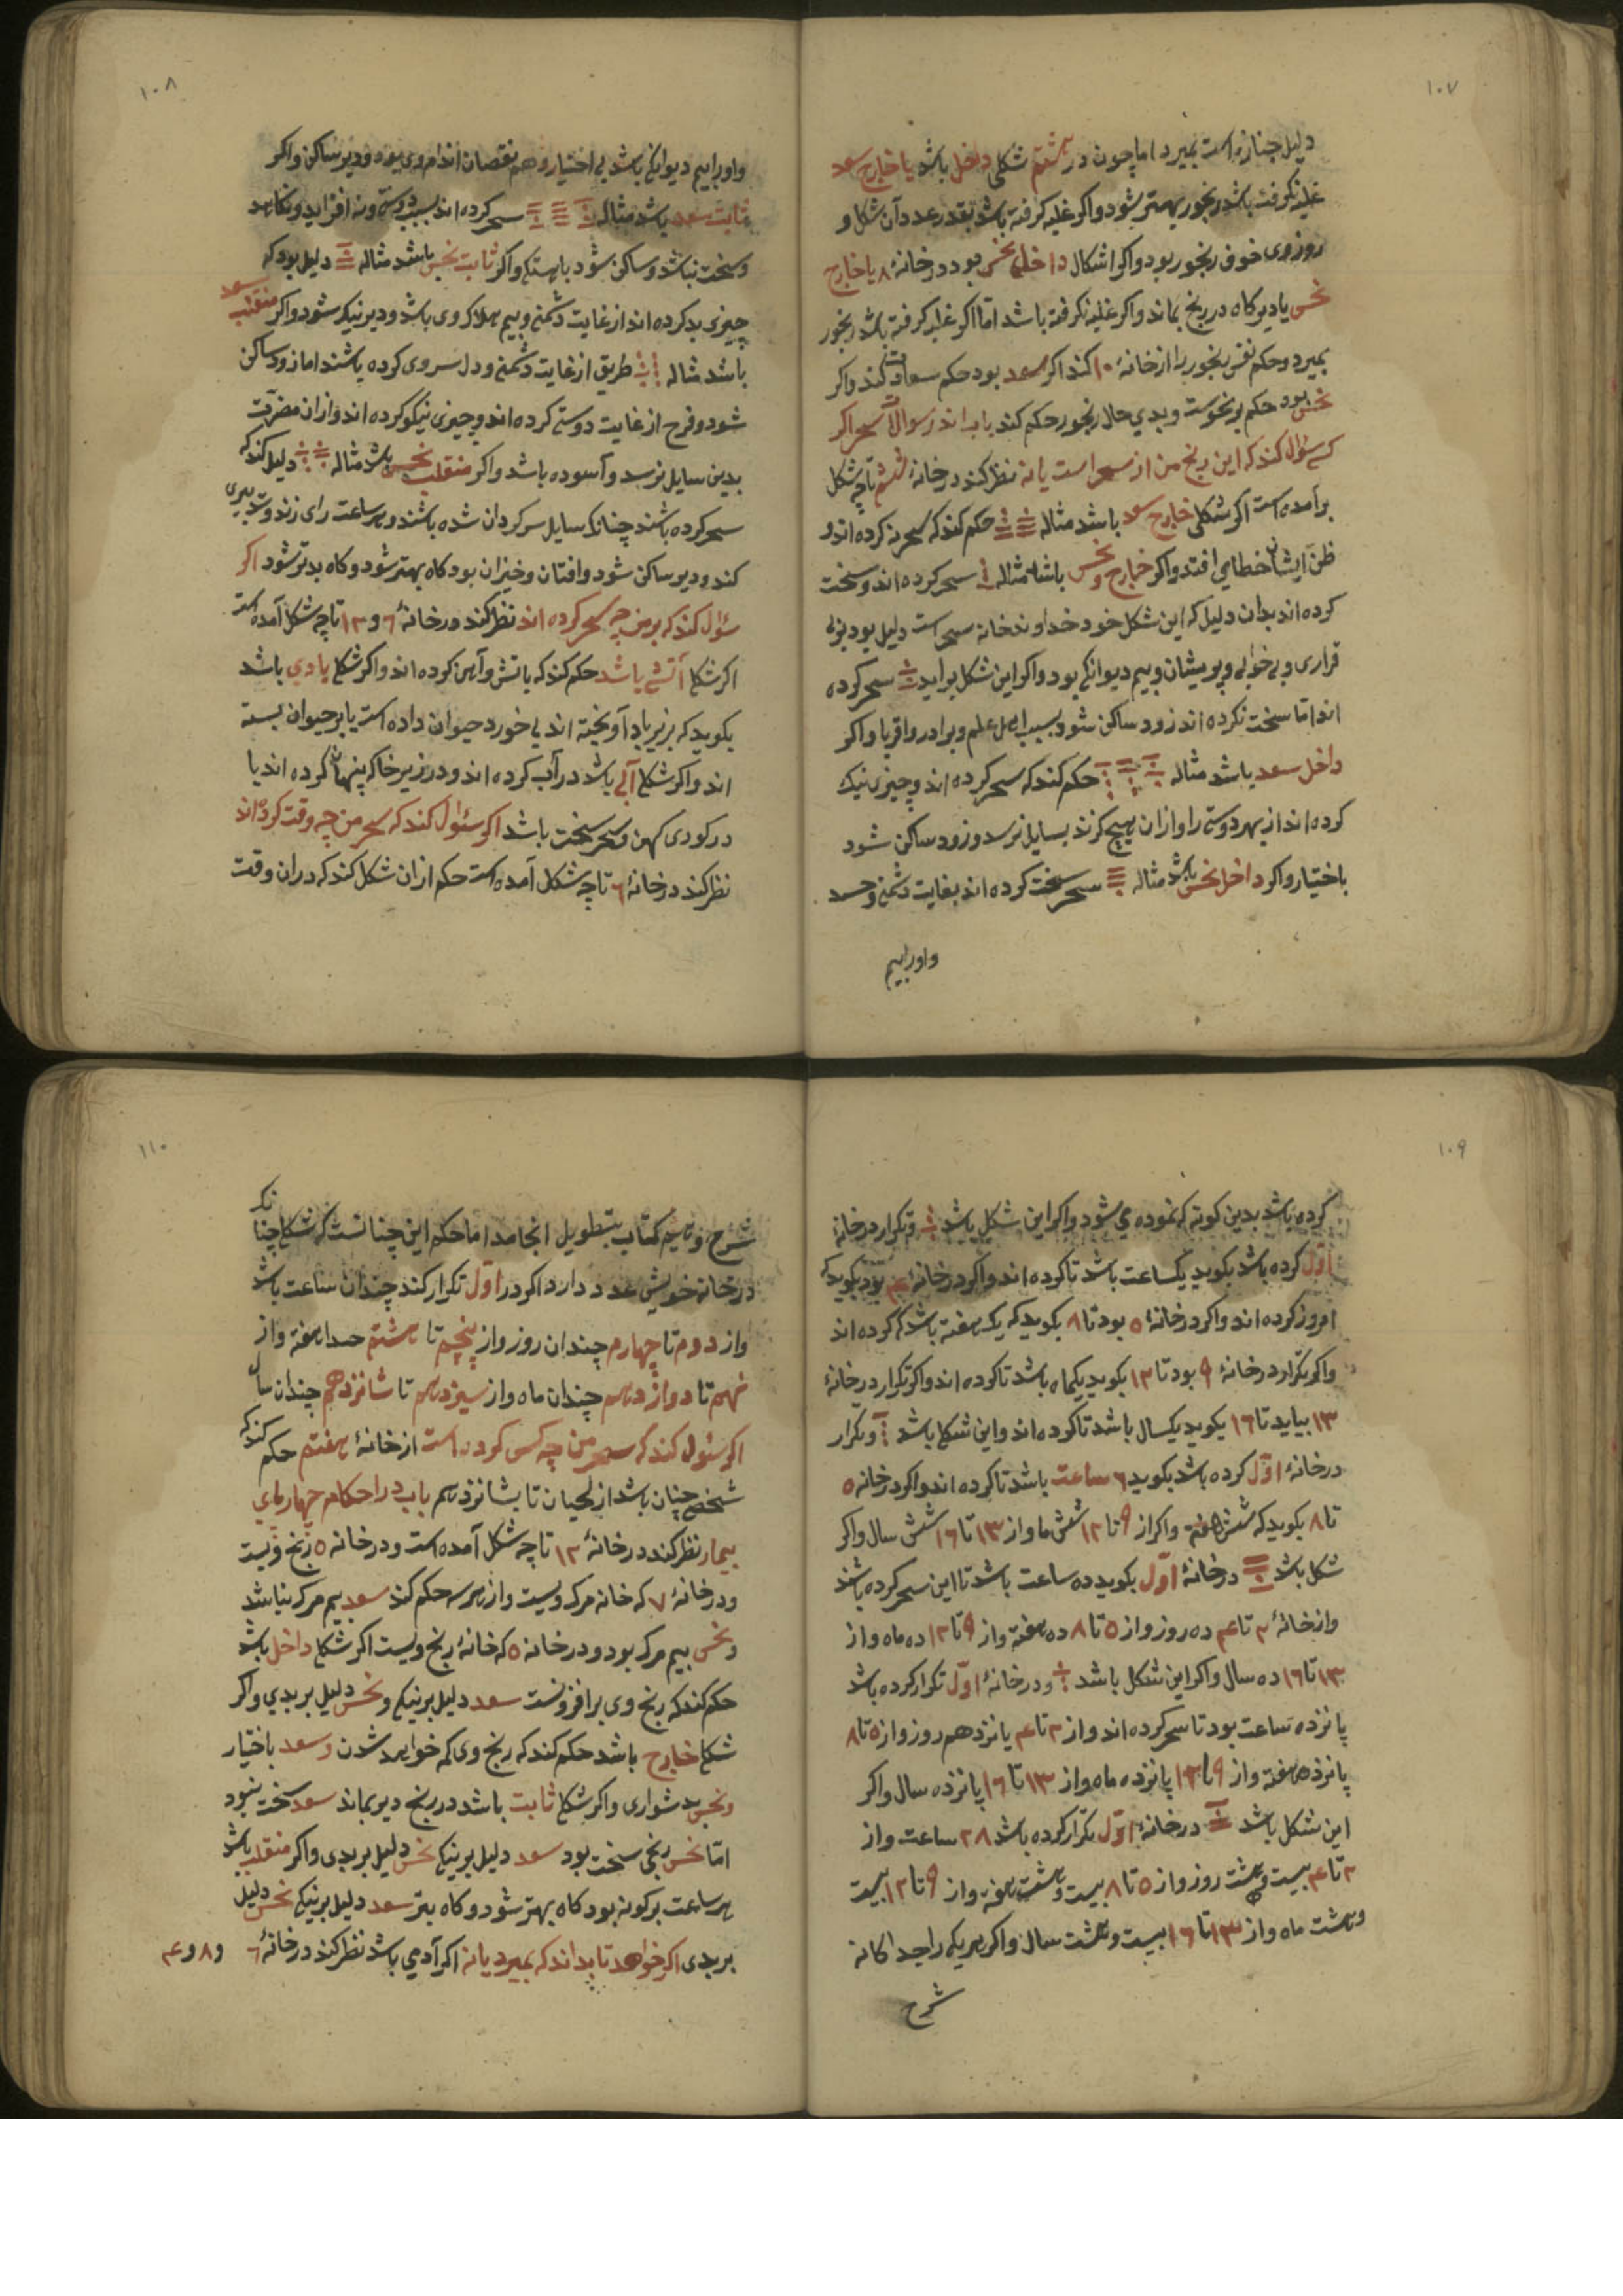 ۱۰۷
دلیل جنازه است بمیرد اما چون در هشتم شکلی داخل باشد یا خارج سعد
غلبه نکرفته باشد رنجور بهتر شود واکر غلبه کرفته باشد بقدر عدد آن شکل و
روز وی خوف رنجور بود واکر اشکال داخل نحس بود در خانهٔ ۸ یا خارج
نحس یا دیرکاه در رنج بماند واکر غلبه نکرفته باشد اما اکر غلبه کرفته باشد رنجور
بمیرد وحکم نفس رنجور را از خانهٔ ۱۰ کند اکر سعد بود حکم سعادت کند واکر
نحس بود حکم بر نحوست وبدی حال رنجور حکم کند باب اندر سوالات سحر اکر
کسی سؤال کند که این رنج من از سحر است یا نه نظر کند در خانهٔ ششم تا چه شکل
برآمده است اکر شکلی خارج سعد باشد مثاله حکم کند که سحر نه کرده اند و
ظن ایشان خطامی افتد واکر خارج ونحس باشد مثاله سحر کرده اند وسخت
کرده اند بدان دلیل که این شکل خود خداوند خانه سحر است دلیل بود بر بی
قراری وبی خوابی وپریشان وبیم دیوانکی بود واکر این شکل برآید سحر کرده
اند اما سخت نکرده اند زود ساکن شود بسبب اهل علم وبرادر واقربا واکر
داخل سعد باشد مثاله حکم کند که سحر کرده اند وچیزی نیک
کرده اند از بهر دوستی را واز ان هیچ کزند بسایل نرسد وزود ساکن شود
باختیار واکر داخل نحس باشد مثاله سحر سخت کرده اند بغایت دشمنی وحسد
واورا بیم
۱۰۸
واورا بیم دیوانکی باشد بی اختیار وهم نقصان اندام وی بود ودیر ساکن واکر
ثابت سعد باشد مثاله سحر کرده اند بسبب دوستی ونه افزاید ونکاهد
وسخت نباشد وساکن شود باهستکی واکر ثابت نحس باشد مثاله دلیل بود که
چیزی بد کرده اند از غایت دشمنی وبیم هلاک وی باشد ودیر نیکو شود واکر منقلب سعد
باشد مثاله طریق از غایت دشمنی ودل سر وی کرده باشند اما زود ساکن
شود وفرح از غایت دوستی کرده اند وچیزی نیکو کرده اند واز ان مضرّت
بدین سایل نرسد وآسوده باشد واکر منقلب نحس باشد مثاله دلیل کند که
سحر کرده باشند چنانکه سایل سرکردان شده باشند وهر ساعت رای زند وتدبیری
کند ودیر ساکن شود وافتان وخیزان بود کاه بهتر شود وکاه بدتر شود اکر
سؤال کند که بر من چه سحر کرده اند نظر کند در خانهٔ ۶ و ۱۳ تا چه شکل آمده است
اکر شکلی آتشی باشد حکم کند که باتش وآهن کرده اند واکر شکلی بادی باشد
بکوید که بزیر باد آویخته اند بی خورد حیوان داده است یا بر حیوان بسته
اند واکر شکلی آبی باشد در آب کرده اند ودر زیر خاک پنهان کرده اند یا
در کوری کهن وسحر سخت باشد اکر سئوال کند که سحر من چه وقت کرده اند
نظر کند در خانهٔ ۶ تا چه شکل آمده است حکم از ان شکل کند که در ان وقت
۱۰۹
کرده باشد بدین کونه که نموده می شود واکر این شکل باشد وتکرار در خانهٔ
اوّل کرده باشد بکوید یکساعت باشد تا کرده اند واکر در خانهٔ ۴ بود بکوید که
امروز کرده اند واکر در خانهٔ ۵ بود تا ۸ بکوید که یک هفته باشد که کرده اند
واکر تکرار در خانهٔ ۹ بود تا ۱۲ بکوید یکماه باشد تا کرده اند واکر تکرار در خانهٔ
۱۳ بیاید تا ۱۶ بکوید یکسال باشد تا کرده اند واین شکل باشد وتکرار
در خانهٔ اوّل کرده باشد بکوید ۶ ساعت باشد تا کرده اند واکر در خانه ۵
تا ۸ بکوید که شش هفته واکر از ۹ تا ۱۲ شش ماه واز ۱۳ تا ۱۶ شش سال واکر
شکل باشد در خانهٔ اوّل بکوید ده ساعت باشد تا این سحر کرده باشند
واز خانهٔ ۲ تا ۴ ده روز واز ۵ تا ۸ ده هفته واز ۹ تا ۱۲ ده ماه واز
۱۳ تا ۱۶ ده سال واکر این شکل باشد ودر خانهٔ اوّل تکرار کرده باشد
پانزده ساعت بود تا سحر کرده اند واز ۲ تا ۴ پانزدهم روز واز ۵ تا ۸
پانزده هفته واز ۹ تا ۱۲ پانزده ماه واز ۱۳ تا ۱۶ پانزده سال واکر
این شکل باشد در خانهٔ اوّل تکرار کرده باشد ۲۸ ساعت واز
۲ تا ۴ بیست وهشت روز واز ۵ تا ۸ بیست وهشت هفته واز ۹ تا ۱۲ بیست
وهشت ماه واز ۱۳ تا ۱۶ بیست وهشت سال واکر هر یکی را جداکانه
شرح
۱۱۰
شرح وهیم کتاب بتطویل انجامد اما حکم این چنانست که شکلی چنانکه
در خانه خویش عدد دارد اکر در اوّل تکرار کند چندان ساعت باشد
واز دوم تا چهارم چندان روز واز پنجم تا هشتم هفته واز
نهم تا دوازدهم چندان ماه واز سیزدهم تا شانزدهم چندان سال
اکر سئوال کند که سحر من چه کس کرده است از خانهٔ هفتم حکم کند که
شخص چنان باشد از لحیان تا بشانزدهم باب در احکام
بیمار نظر کند در خانهٔ ۱۲ تا چه شکل آمده است ودر خانه ۵ رنج ویست
ودر خانهٔ ۷ که خانه مرک ویست واز هر سه حکم کند سعد بیم مرک نباشد
ونحس بیم مرک بود ودر خانه ۵ که خانهٔ رنج ویست اکر شکلی داخل باشد
حکم کند که رنج وی بر افزونست سعد دلیل بر نیکی ونحس دلیل بر بدی واکر
شکلی خارج باشد حکم کند که رنج وی کم خواهد شدن وسعد باختیار
ونحس بدشواری واکر شکلی ثابت باشد در رنج دیر بماند سعد سخت نبود
امّا نحس رنجی سخت بود سعد دلیل بر نیکی نحس دلیل بر بدی واکر منقلب باشد
هر ساعت بر کونه بود کاه بهتر شود وکاه بتر سعد دلیل بر نیکی نحس دلیل
بر بدی اکر خواهد تا بداند که بمیرد یا نه اکر آدمی باشد نظر کند در خانهٔ ۶ و ۸ و ۴